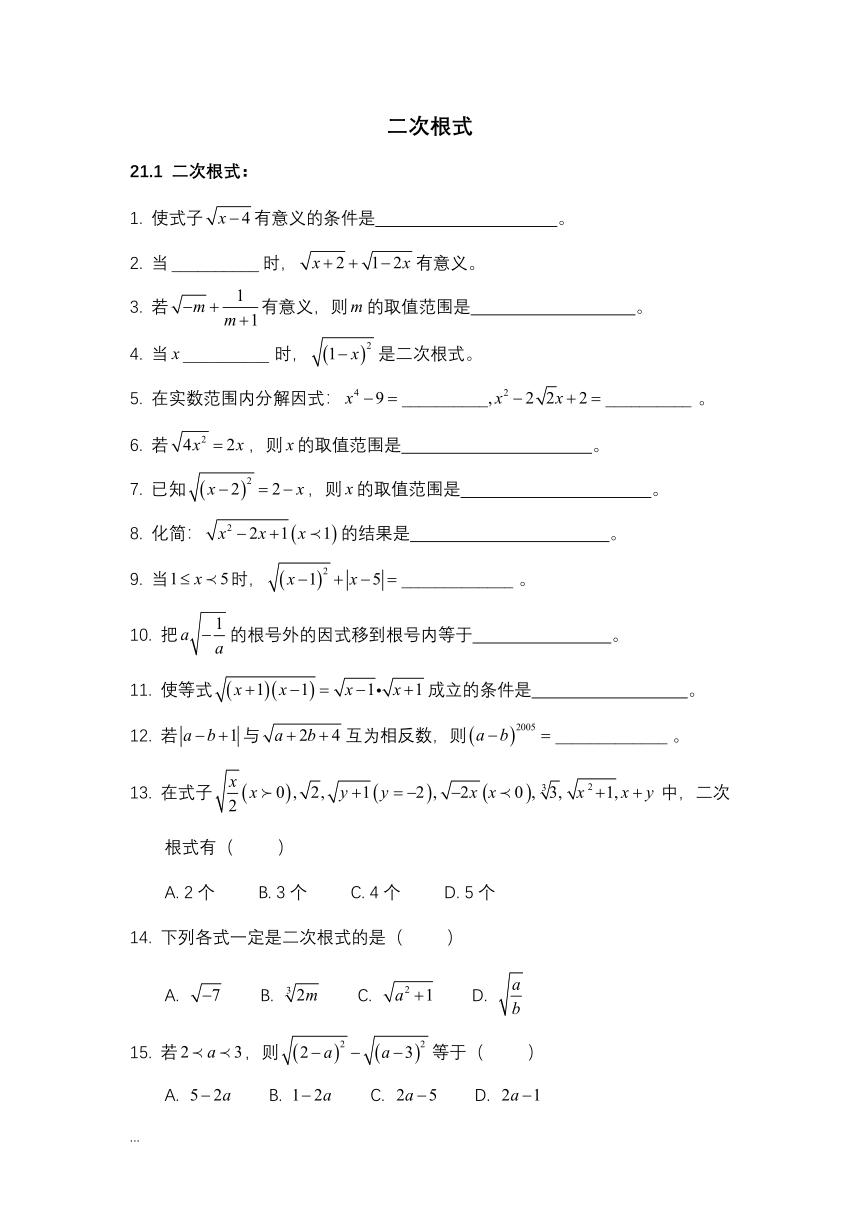 二次根式
21.1 二次根式：
1. 使式子√(x−4)有意义的条件是____________________。
2. 当__________时，√(x+2)+√(1−2x)有意义。
3. 若√(−m)+1/(m+1)有意义，则m的取值范围是____________________。
4. 当x__________时，√((1−x)²)是二次根式。
5. 在实数范围内分解因式：x⁴−9=__________,x²−2√2x+2=__________。
6. 若√(4x²)=2x，则x的取值范围是____________________。
7. 已知√((x−2)²)=2−x，则x的取值范围是____________________。
8. 化简：√(x²−2x+1)(x≺1)的结果是____________________。
9. 当1≤x≺5时，√((x−1)²)+|x−5|=_____________。
10. 把a√(−1/a)的根号外的因式移到根号内等于________________。
11. 使等式√((x+1)(x−1))=√(x−1)•√(x+1)成立的条件是__________________。
12. 若|a−b+1|与√(a+2b+4)互为相反数，则(a−b)²⁰⁰⁵=_____________。
13. 在式子√(x/2)(x≻0),√2,√(y+1)(y=−2),√(−2x)(x≺0),∛3,√(x²+1),x+y中，二次
根式有（　　）
A. 2个　B. 3个　C. 4个　D. 5个
14. 下列各式一定是二次根式的是（　　）
A. √(−7)　B. ∛(2m)　C. √(a²+1)　D. √(a/b)
15. 若2≺a≺3，则√((2−a)²)−√((a−3)²)等于（　　）
A. 5−2a　B. 1−2a　C. 2a−5　D. 2a−1
...